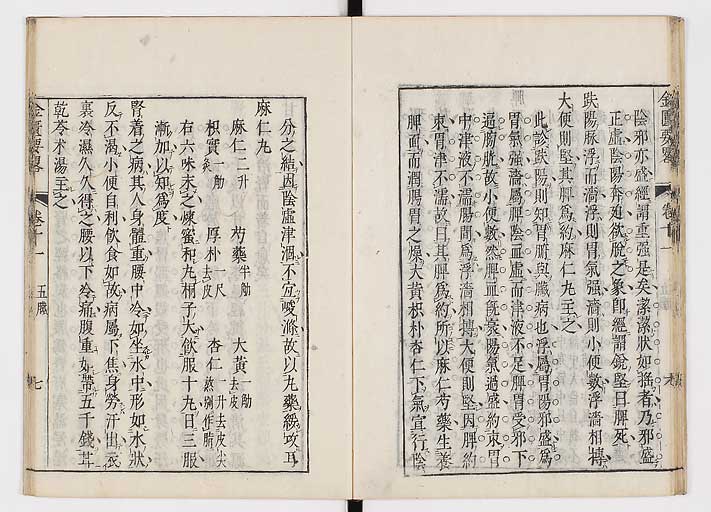 金匱要畧　卷十一
陰邪亦盛經謂重强是矣潔潔狀如搖者乃邪盛
正虛陰陽奔廹欲脫之象卽經謂銳堅曰脾死
趺陽脉浮而濇浮則胃氣强濇則小便數浮濇相摶
大便則堅其脾爲約麻仁九主之
此診趺陽則知胃腑與臟病也浮屬胃陽邪盛爲
胃氣强濇屬脾陰血虛而津液不足脾胃受邪下
逼膀胱故小便數然脾血旣衰陽氣過盛約束胃
中津液不濡腸間爲浮濇相摶大便則堅因脾約
束胃津不濡故曰其脾爲約所以麻仁芍藥生養
脾血而潤腸胃之燥大黃枳朴杏仁下氣宣行陰
分之結因陰虛津涸不宜峻滌故以九藥緩攻耳
麻仁九
麻仁二升　芍藥半觔　大黃一觔去皮
枳實一觔炙　厚朴一尺去皮　杏仁一升去皮尖熬別作脂
右六味末之煉蜜和九桐子大飮服十九日三服
漸加以知爲度
腎着之病其人身體重腰中冷如坐水中形如水狀
反不渴小便自利飮食如故病屬下焦身勞汗出衣
裏冷濕久久得之腰以下冷痛腹重如帶五千錢甘
乾苓术湯主之
金匱要畧　卷十一　五臟　七